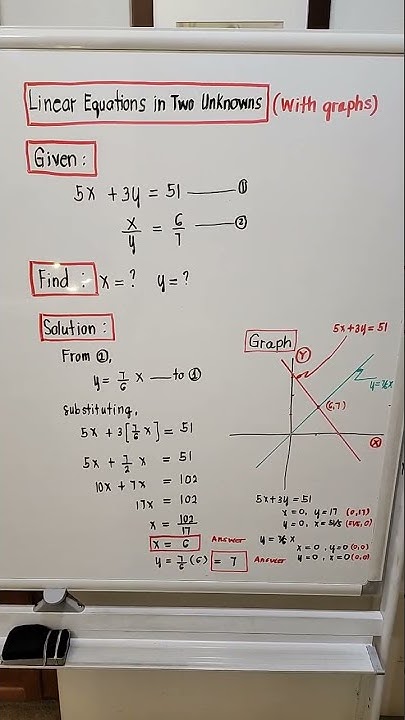 Linear Equations in Two Unknowns (with graphs)
Given:
5x + 3y = 51 —— ①
x/y = 6/7 —— ②
Find: x = ? y = ?
Solution:
From ②,
y = 7/6 x — to ①
Substituting,
5x + 3[7/6 x] = 51
5x + 7/2 x = 51
10x + 7x = 102
17x = 102
x = 102/17
x = 6 Answer
y = 7/6 (6) = 7 Answer
Graph
5x + 3y = 51
Y
y = 7/6 x
(6,7)
X
5x + 3y = 51
x = 0, y = 17 (0,17)
y = 0, x = 51/5 (51/5, 0)
y = 7/6 x
x = 0, y = 0 (0,0)
y = 0, x = 0 (0,0)